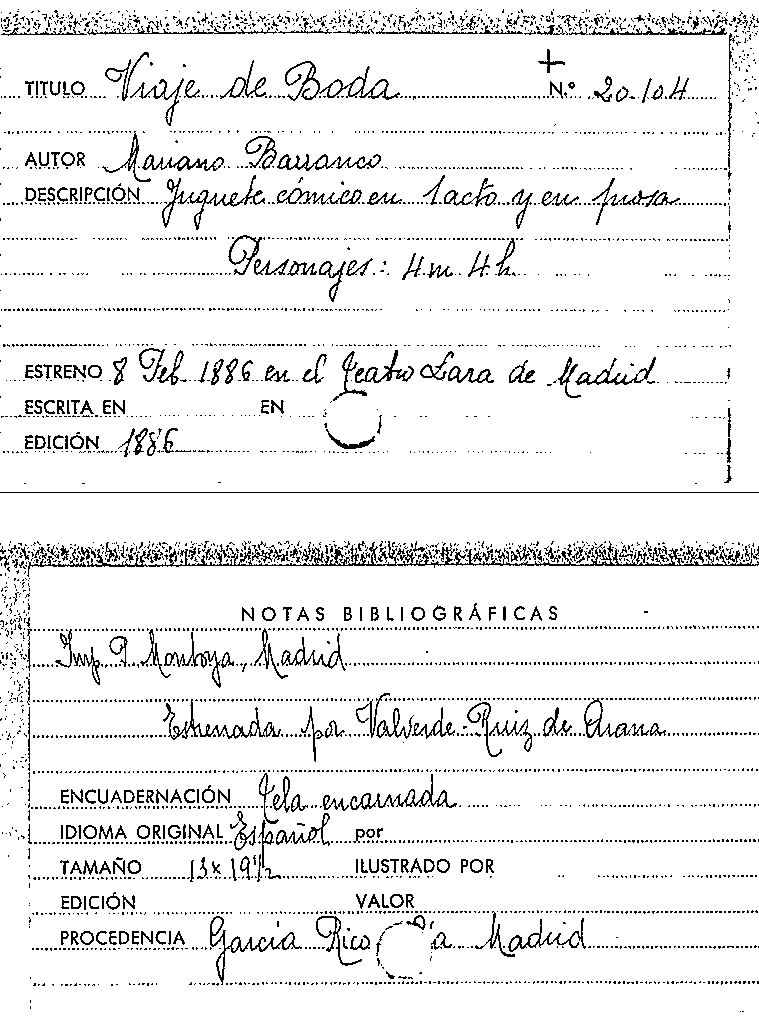 TITULO Viaje de Boda N.º 20.104
AUTOR Mariano Barranco
DESCRIPCIÓN Juguete cómico en 1 acto y en prosa
Personajes: 4 m 4 h
ESTRENO 8 Feb 1886 en el Teatro Lara de Madrid
ESCRITA EN EN
EDICIÓN 1886
NOTAS BIBLIOGRÁFICAS
Imp. P. Montoya, Madrid
Estrenada por Valverde-Ruiz de Arana
ENCUADERNACIÓN Tela encarnada
IDIOMA ORIGINAL Español por
TAMAÑO 13 x 19 1/2 ILUSTRADO POR
EDICIÓN VALOR
PROCEDENCIA García Rico Madrid